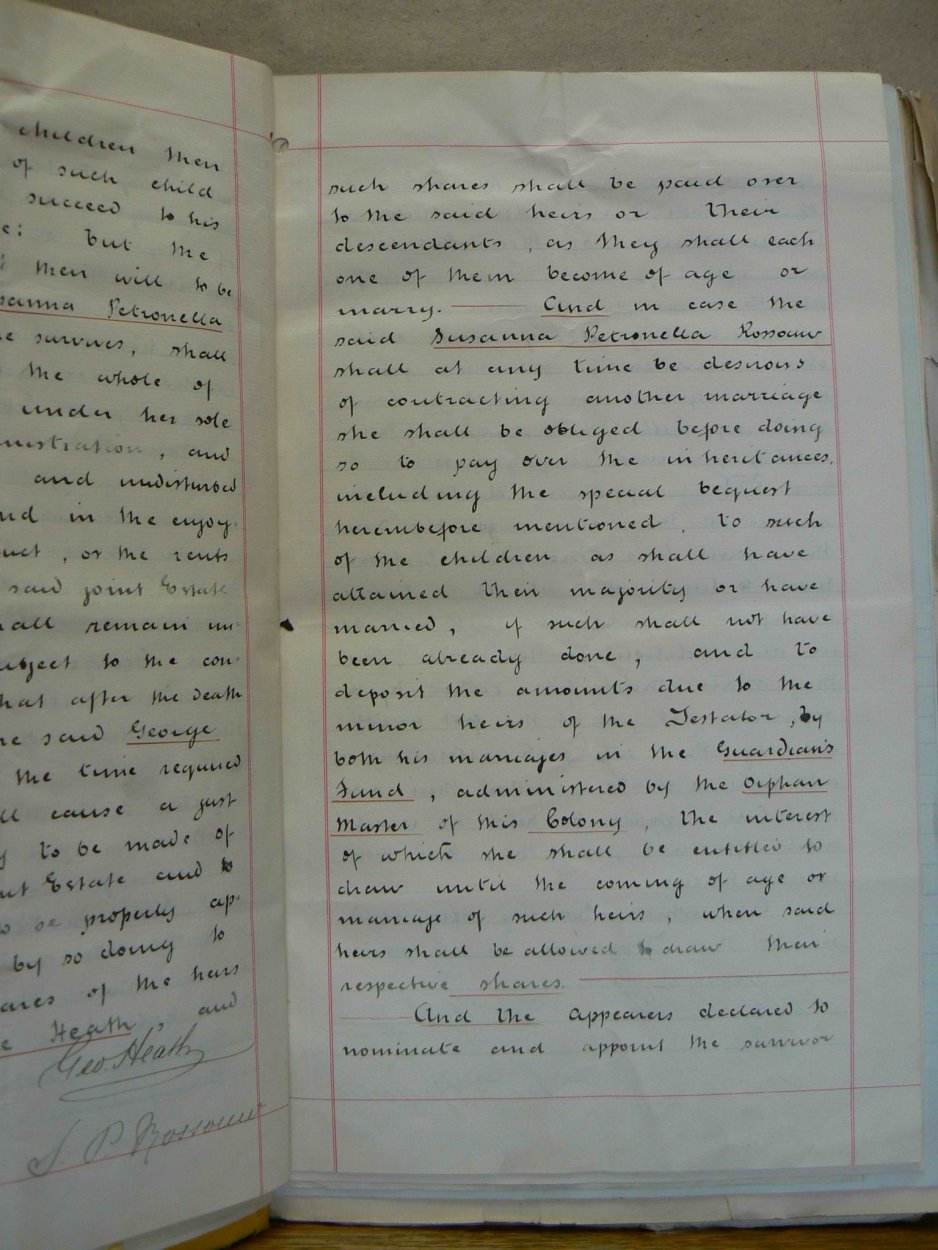 children then
of such child
succeed to his
but the
then will to be
sanna Petronella
survives, shall
the whole of
under her sole
nistration, and
and undisturbed
nd in the enjoy-
uct, or the rents
said joint Estate
hall remain un-
subject to the con-
hat after the death
he said George
the time required
ll cause a just
to be made of
nt Estate and to
to be properly ap-
by so doing to
ares of the heirs
e Heath, and
Geo. Heath
S. P. Rossouw
such shares shall be paid over
to the said heirs or their
descendants, as they shall each
one of them become of age or
marry. — And in case the
said Susanna Petronella Rossouw
shall at any time be desirous
of contracting another marriage
she shall be obliged before doing
so to pay over the inheritances,
including the special bequest
hereinbefore mentioned, to such
of the children as shall have
attained their majority or have
married, if such shall not have
been already done, and to
deposit the amounts due to the
minor heirs of the Testator, by
both his marriages in the Guardian's
Fund, administered by the Orphan
Master of this Colony, the interest
of which she shall be entitled to
draw until the coming of age or
marriage of such heirs, when said
heirs shall be allowed to draw their
respective shares. —
— And the appearers declared to
nominate and appoint the survivor